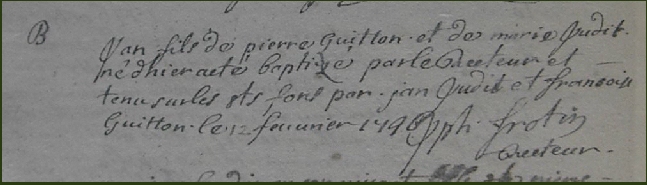 B
Jan fils de pierre Guitton. et de marie Judit.
né dhier a eté baptize par le Recteur et
tenu sur les sts fons par. jan Judit et francois
Guitton. le 12 feuurier 1796 Jph. frotin
Recteur.